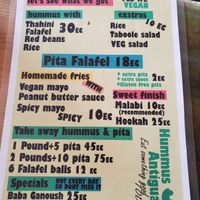 let's see what we got
VEGAN
hummus with
exstras
Thahini
Falafel 30EC
Red beans
Rice
Rice 6EC
Taboole salad
VEG salad
Pita Falafel 18EC
Homemade fries
WITH
Vegan mayo
Peanut butter sauce
Spicy mayo 10EC
SPICY 10EC
+ extra pita 2EC
+ extra sauce 2EC
+Gluten free pita
Sweet finish
Malabi 10EC
(recommended)
Hookah 25EC
Take away hummus & pita
1 Pound+5 pita 45EC
2 Pounds+10 pita 75EC
6 Falafel balls 12EC
Specials
NOT EVERY DAY
SO DONT MISS IT
Baba Ganoush 25EC
Hummus
Antigua
Eat something